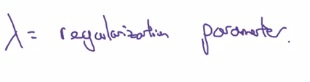 λ = regularization parameter.